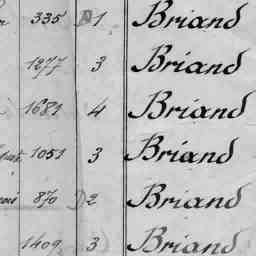 335 D 1 Briand
1277 3 Briand
1681 4 Briand
1051 3 Briand
870 D 2 Briand
1409 3 Briand